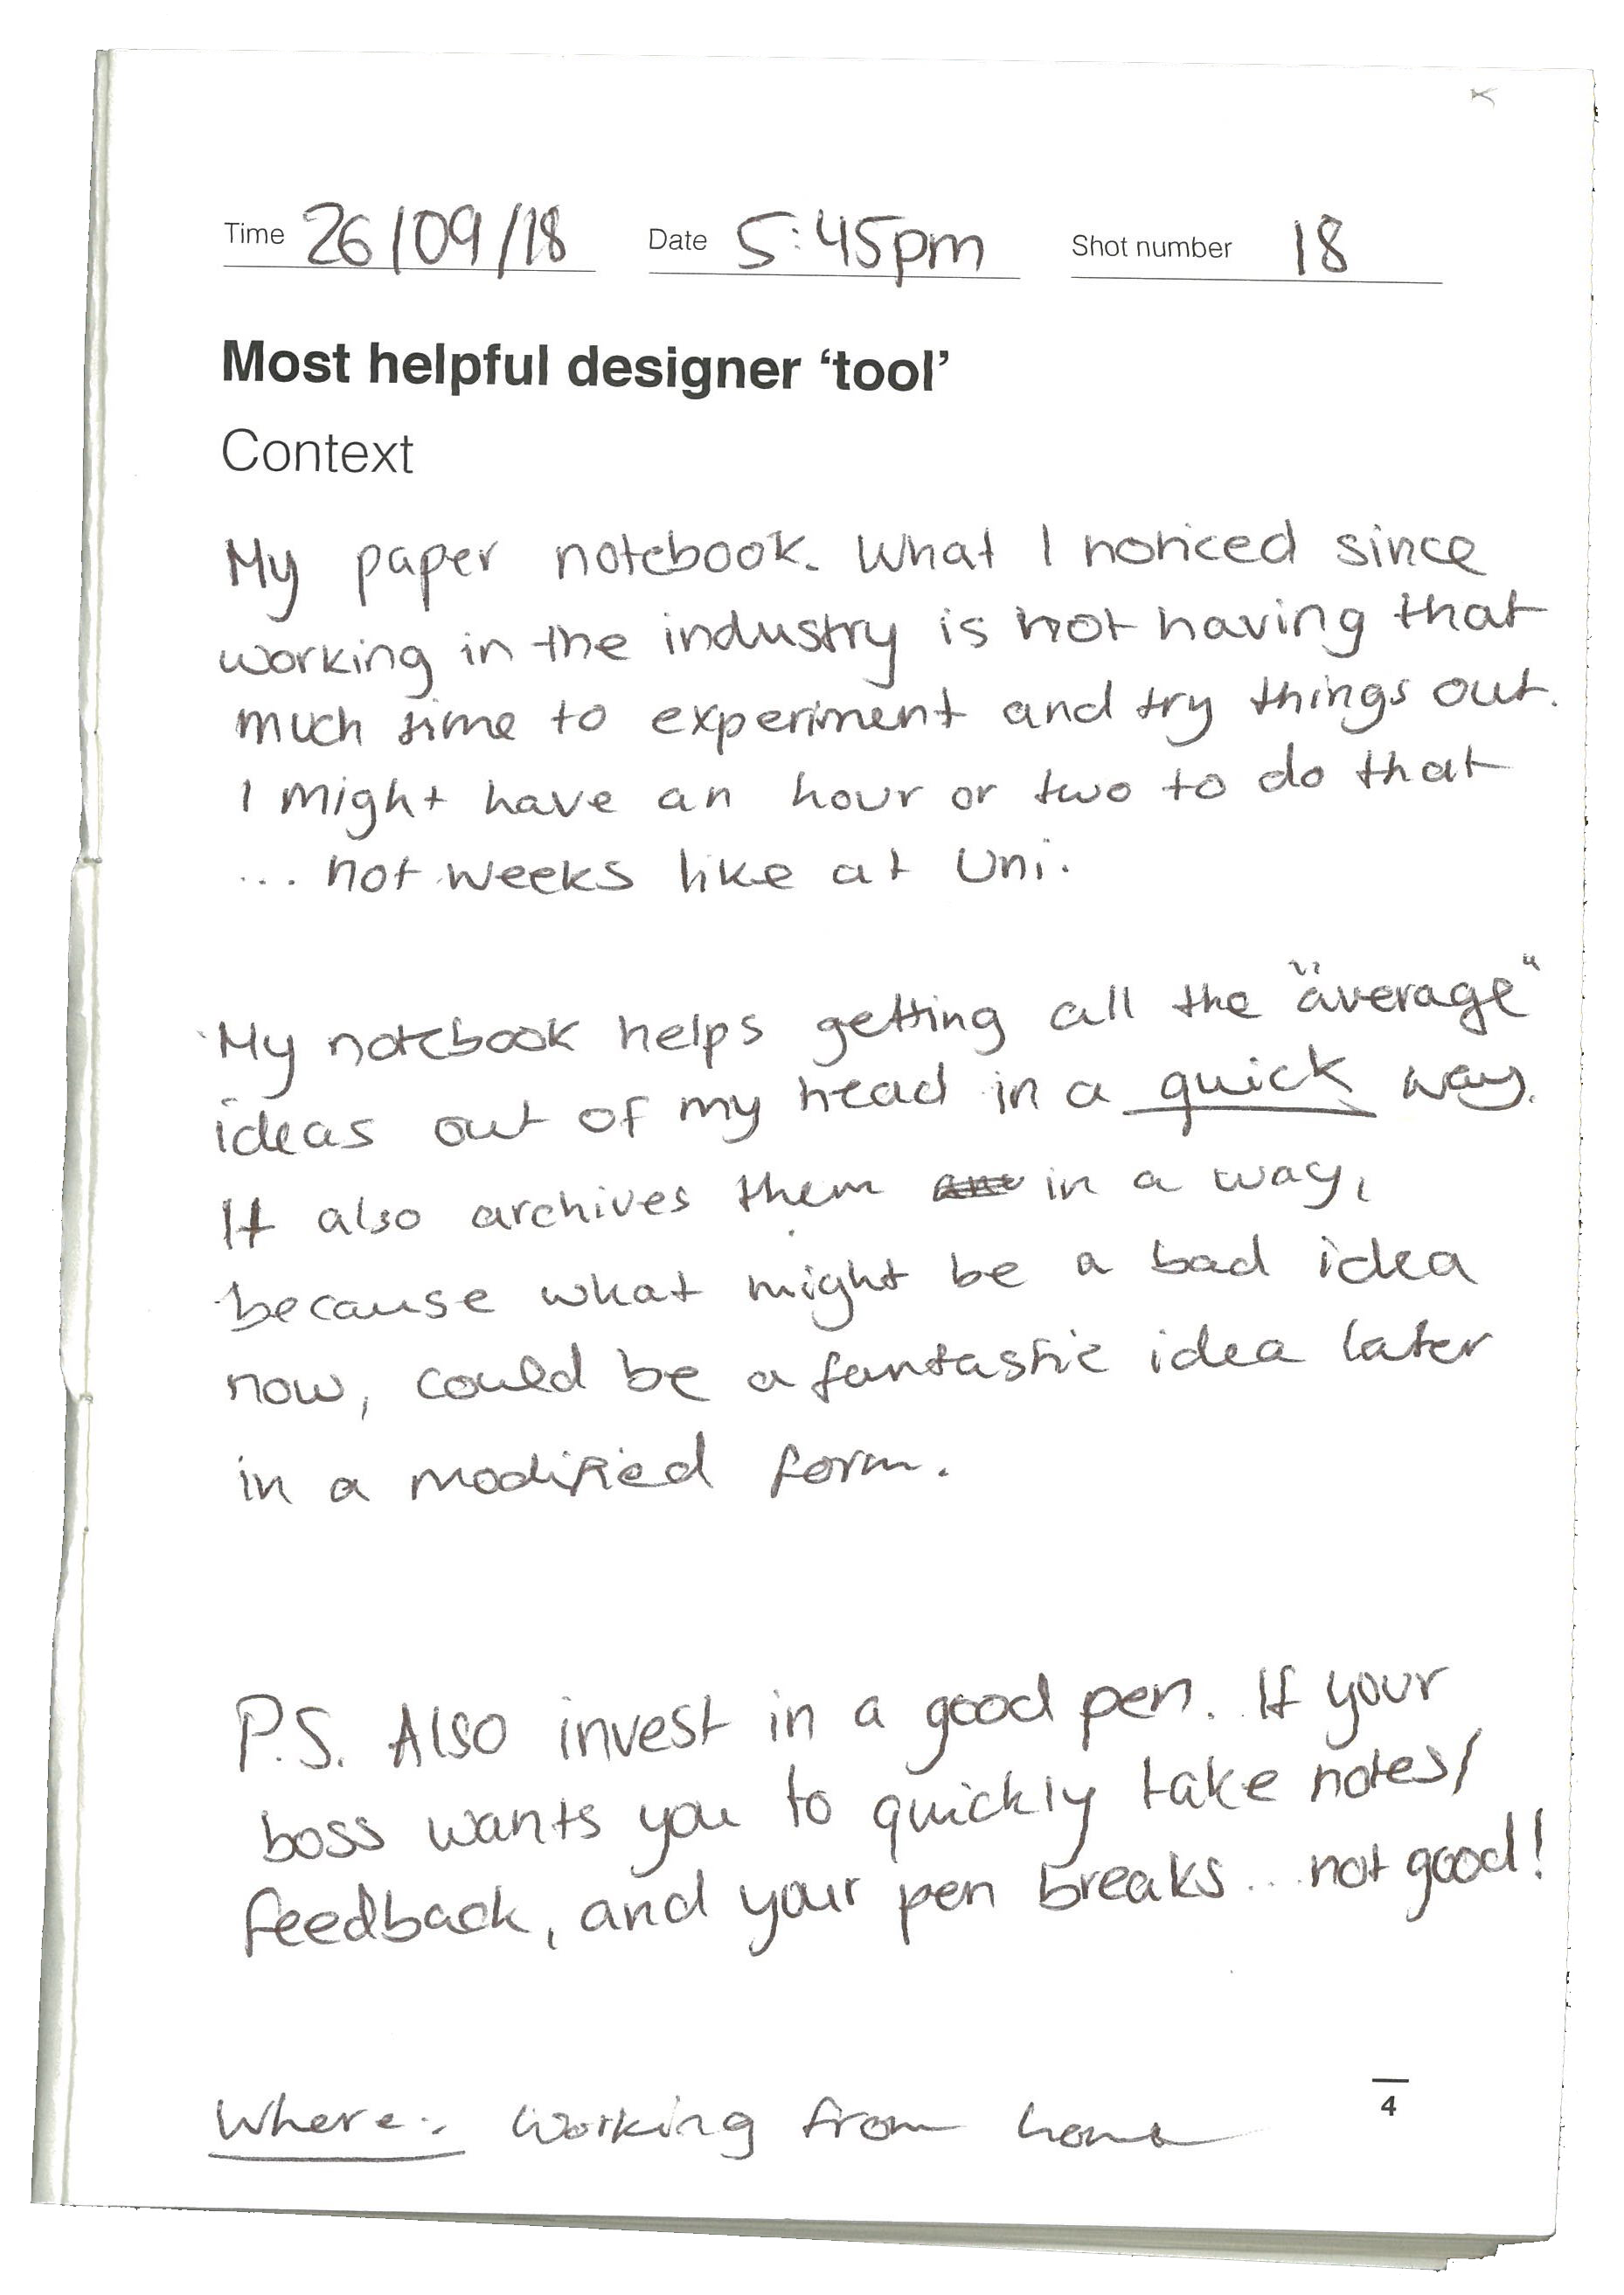 Time 26/09/18 Date 5:45pm Shot number 18
Most helpful designer ‘tool’
Context
My paper notebook. What I noticed since
working in the industry is not having that
much time to experiment and try things out.
I might have an hour or two to do that
... not weeks like at Uni.
My notebook helps getting all the "average"
ideas out of my head in a quick way.
It also archives them in a way,
because what might be a bad idea
now, could be a fantastic idea later
in a modified form.
P.S. Also invest in a good pen. If your
boss wants you to quickly take notes/
feedback, and your pen breaks... not good!
4
Where: Working from home